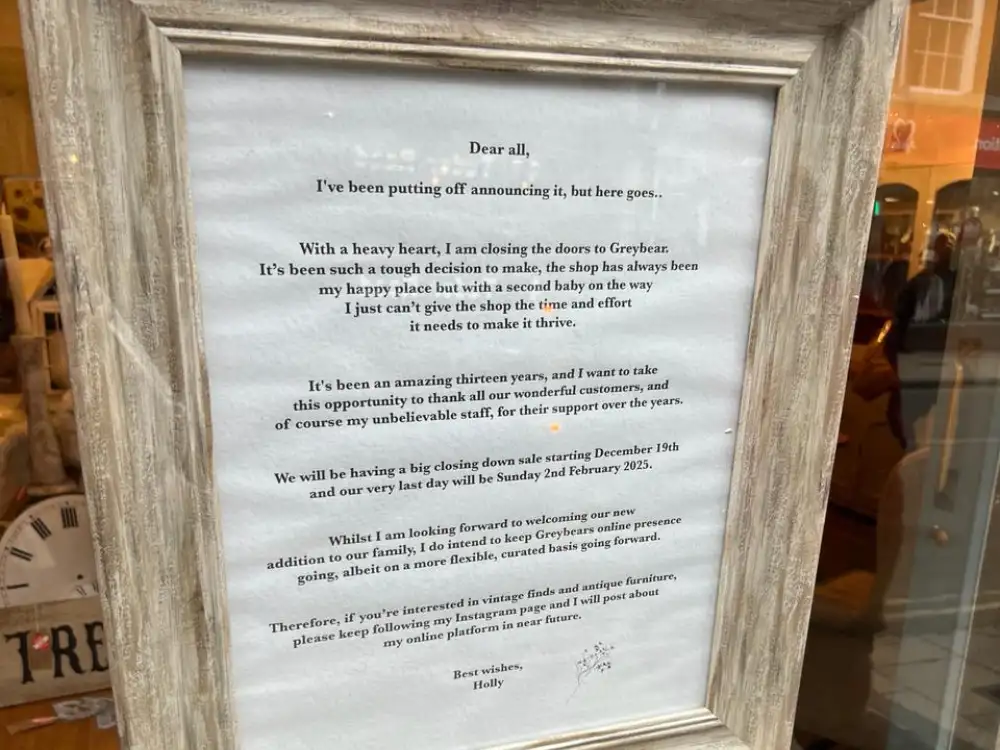 Dear all,
I've been putting off announcing it, but here goes..
With a heavy heart, I am closing the doors to Greybear.
It's been such a tough decision to make, the shop has always been
my happy place but with a second baby on the way
I just can't give the shop the time and effort
it needs to make it thrive.
It's been an amazing thirteen years, and I want to take
this opportunity to thank all our wonderful customers, and
of course my unbelievable staff, for their support over the years.
We will be having a big closing down sale starting December 19th
and our very last day will be Sunday 2nd February 2025.
Whilst I am looking forward to welcoming our new
addition to our family, I do intend to keep Greybears online presence
going, albeit on a more flexible, curated basis going forward.
Therefore, if you're interested in vintage finds and antique furniture,
please keep following my Instagram page and I will post about
my online platform in near future.
Best wishes,
Holly
TRE